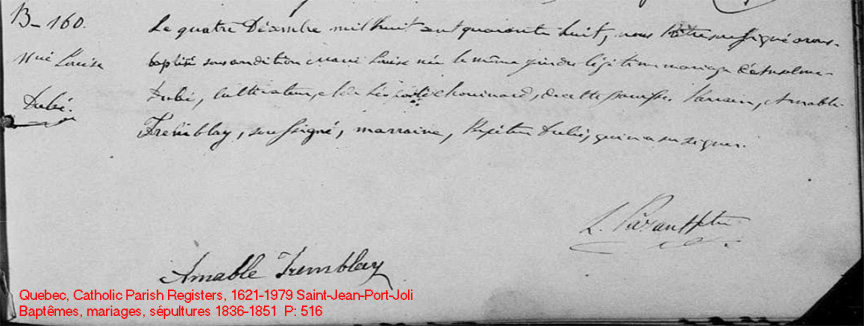 B-160.
Mie Louise
Dubé.
Le quatre Décembre mil huit cent quarante huit, nous Prêtre soussigné avons
baptisé sous condition Marie Louise née le même jour du légitime mariage d'Anselme
Dubé, cultivateur, et de Chouinard, de cette paroisse. Parrain, Amable
Tremblay, soussigné, marraine, Dubé, qui n'a su signer.
L. Ptre
Amable Tremblay
Quebec, Catholic Parish Registers, 1621-1979 Saint-Jean-Port-Joli
Baptêmes, mariages, sépultures 1836-1851 P: 516